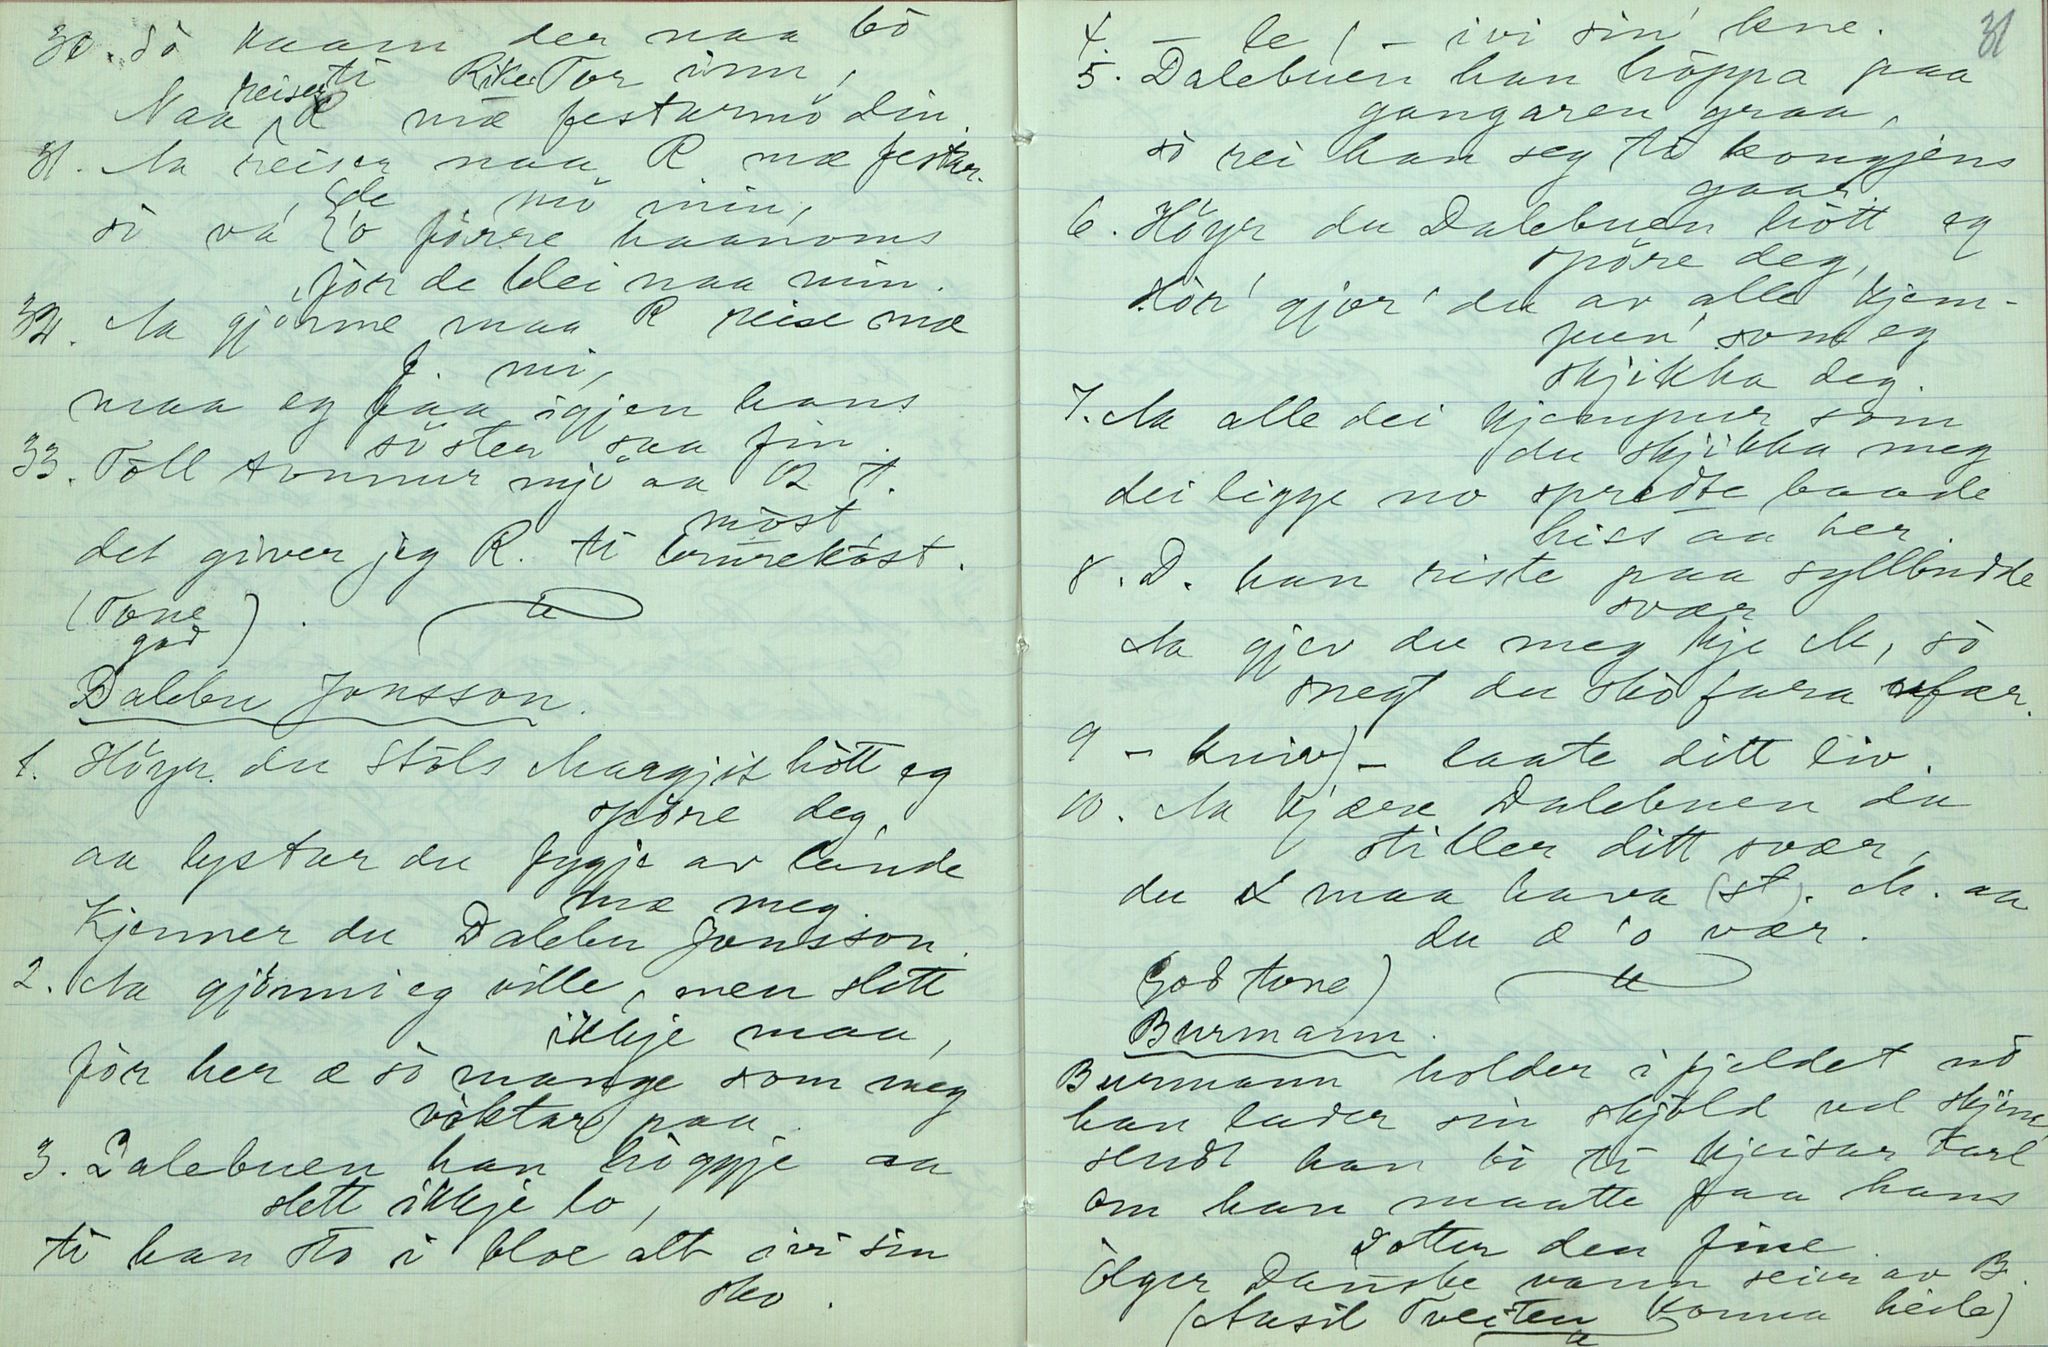 30. Sò kaam der naa bò
ti Riker Tor inn,
Naa reiser R mæ festarmö din.
31. Aa reiser naa R mæ festar-
mö min,
si vá de 'o förre haanoms
för de blei naa min.
32. Aa gjönne maa R reise mæ
f. mi,
maa eg faa igjen hans
söster saa fin.
33. Toll tonnur mjö aa R T.
möst
det giver jeg R. ti brurekost.
(Tone
god)
Dalebu Jonsson.
1. Höyr du Stòls Margjit hòtt eg
spöre deg,
aa lystar du fygje av lande
mæ meg.
Kjenner du Dalebu Jonsson.
2. Aa gjönni eg ville, men slett
ikkje maa,
för her æ sò mange som meg
viktar paa.
3. Dalebuen han höggje aa
slett ikkje lo,
ti han sto i bloe alt ivi sin
sko.
31
4. — le / — ivi sin kne.
5. Dalebuen han höppa paa
gangaren graa,
sò rei han seg ti kongjens
gaar.
6. Höyr du Dalebuen hòtt eg
spöre deg,
Hòr' gjor' du av alle kjem-
pun' som eg
skjikka deg.
7. Aa alle dei kjempur som
du skjikka meg
dei ligge no spredte baade
hiss aa her.
8. D. han riste paa syllbudde
svær
Aa gjev du meg kje M, sò
snegt du skò fara ufær.
9 — kniv) — laate ditt liv.
10. Aa kjære Dalebuen du
stiller ditt svær,
du maa hava (st). M. aa
du æ 'o vær.
(god tone)
Burmann.
Burmann holder i fjeldet nò
han lader sin skjöld vel skjine,
sendt han bò ti kjeisar Karl
om han maatte faa hans
Dotter den fine.
Olger Danske vann seier av B.
(Aasil Tveiten konna heile)